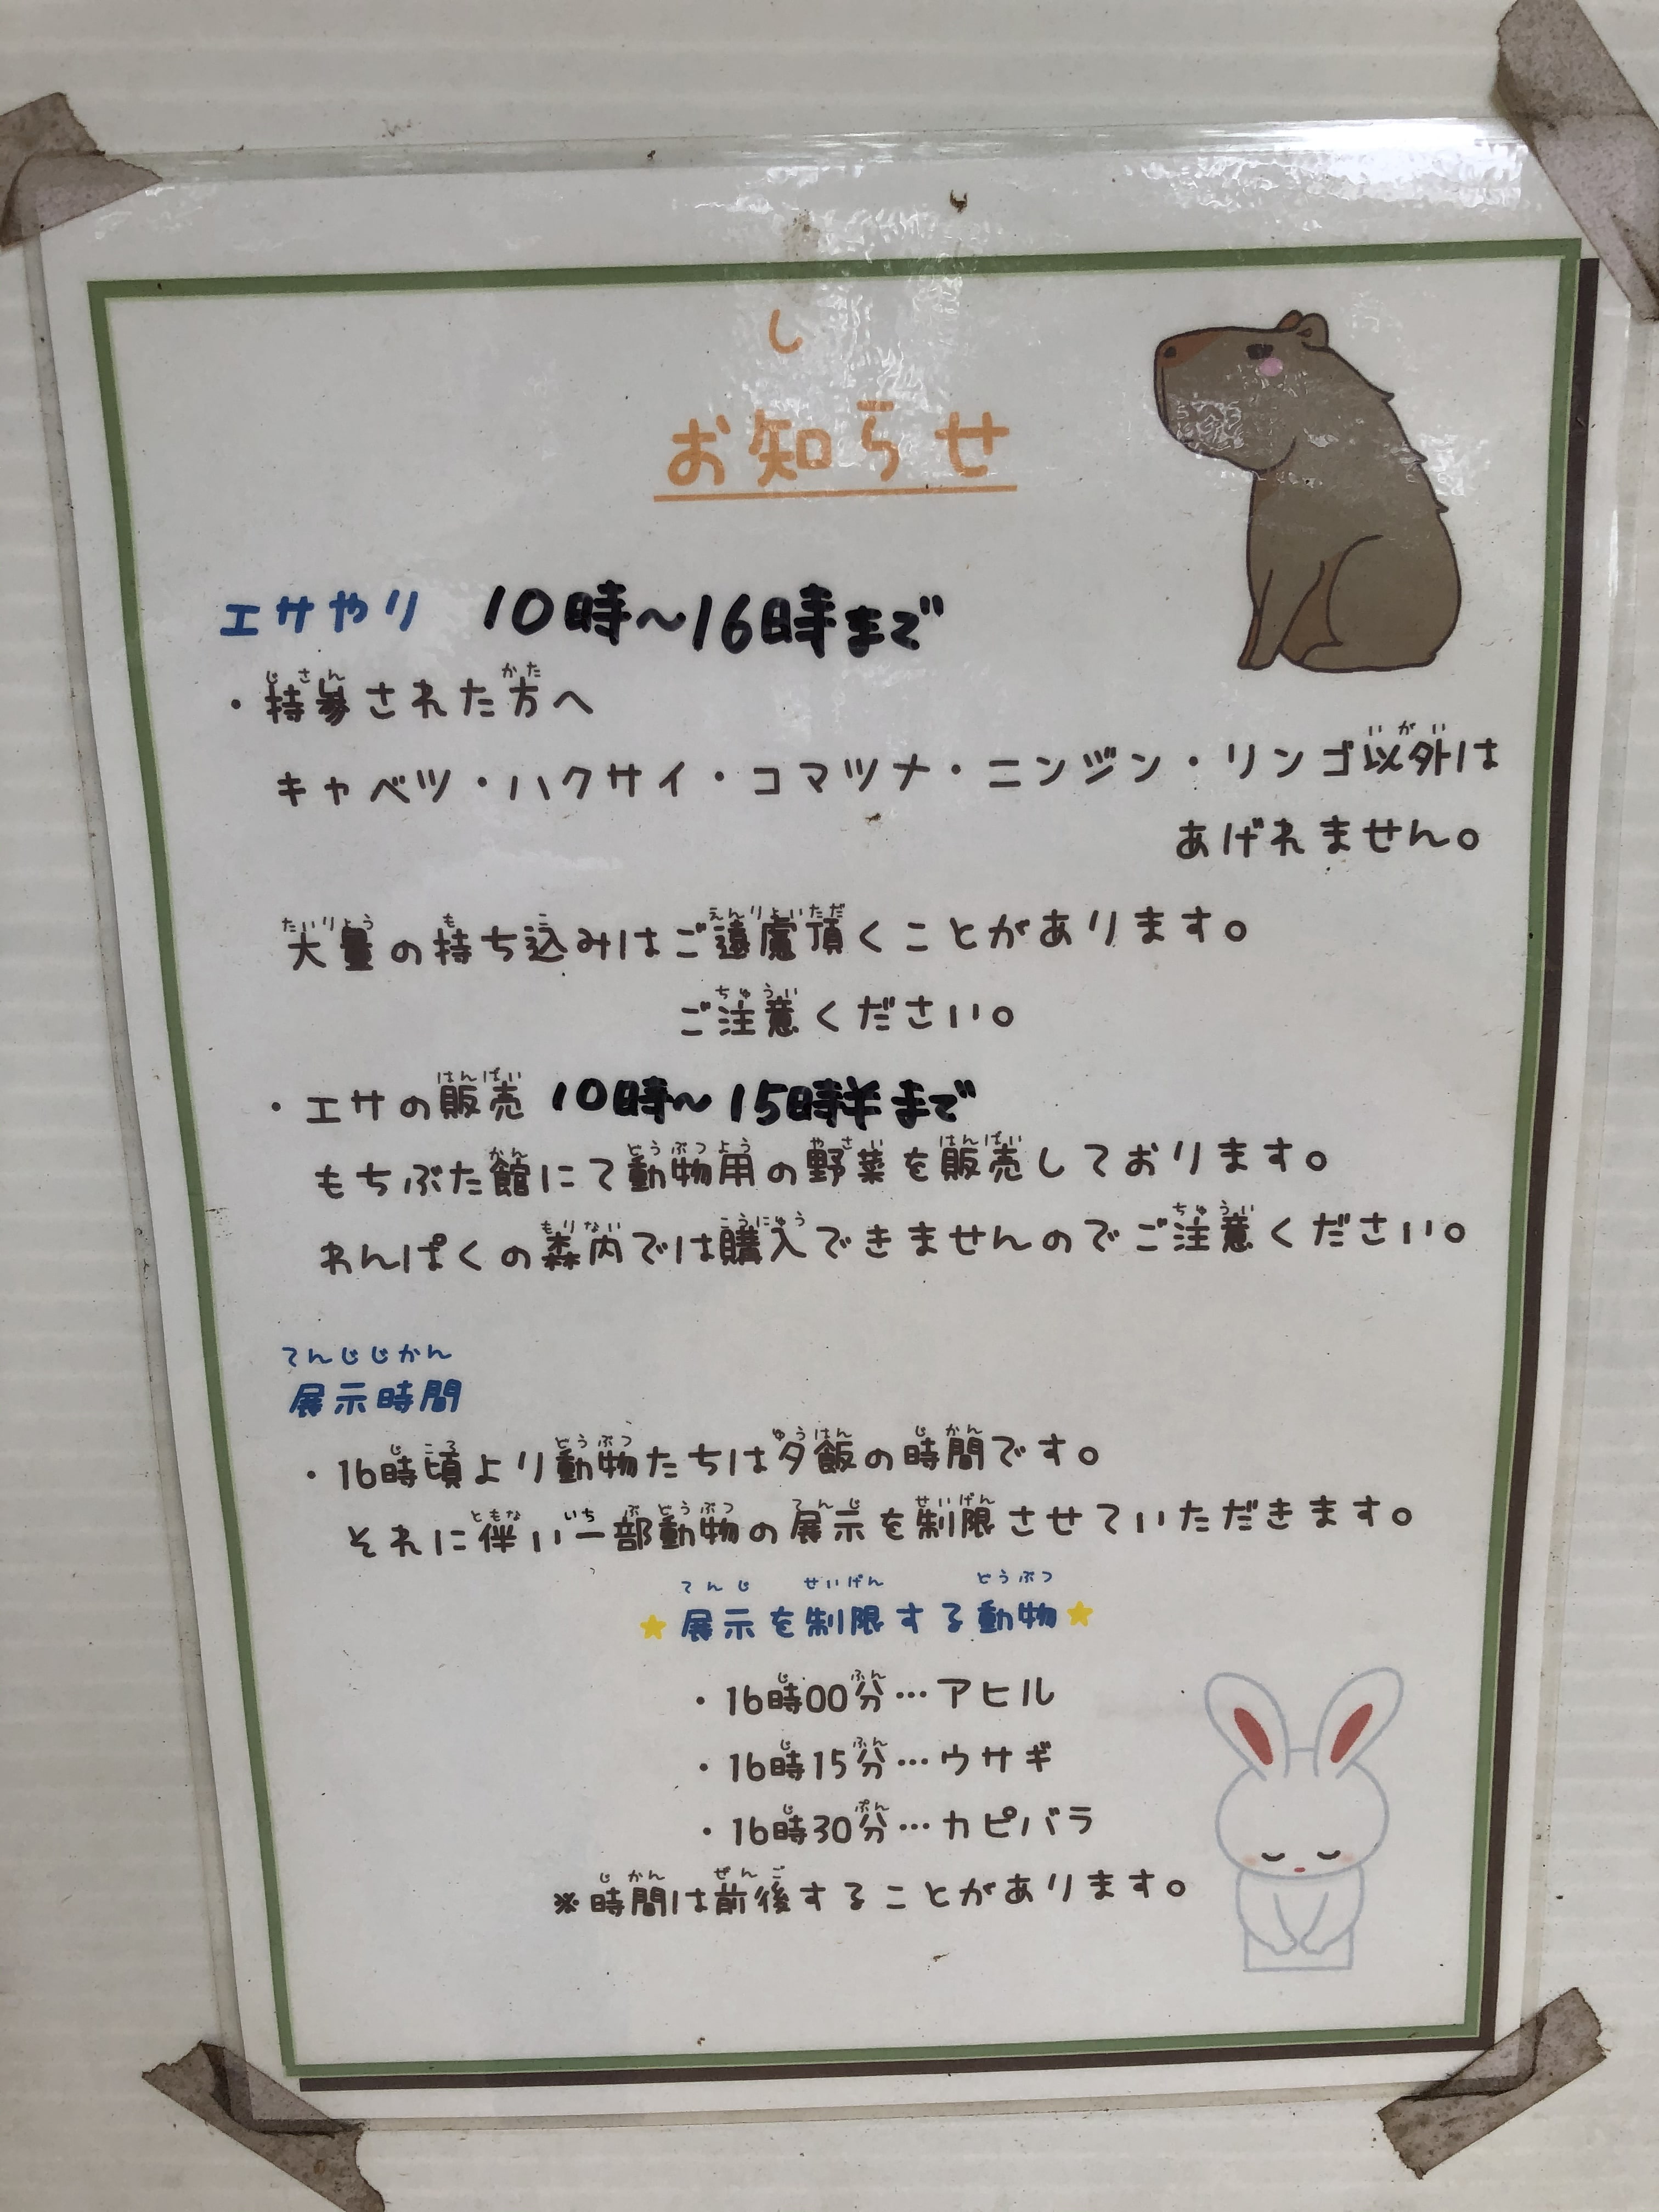 お知らせ
エサやり 10時~16時まで
・持参された方へ
キャベツ・ハクサイ・コマツナ・ニンジン・リンゴ以外は
あげれません。
大量の持ち込みはご遠慮頂くことがあります。
ご注意ください。
・エサの販売 10時~15時半まで
もちぶた館にて動物用の野菜を販売しております。
わんぱくの森内では購入できませんのでご注意ください。
てんじじかん
展示時間
・16時頃より動物たちは夕飯の時間です。
それに伴い一部動物の展示を制限させていただきます。
てんじ せいげん どうぶつ
★展示を制限する動物★
・16時00分…アヒル
・16時15分…ウサギ
・16時30分…カピバラ
※時間は前後することがあります。